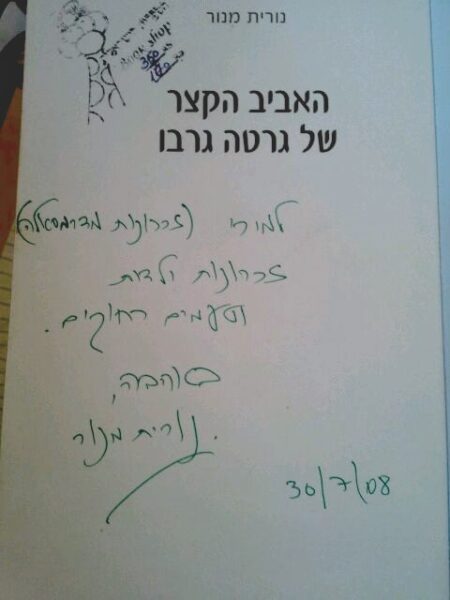 נורית מנור
Book Shop
350
האביב הקצר
של גרטה גרבו
(זכרונות מדרמסאלה)
זכרונות ילדות
וטעמים רחוקים.
באהבה,
נורית מנור.
30/7/08